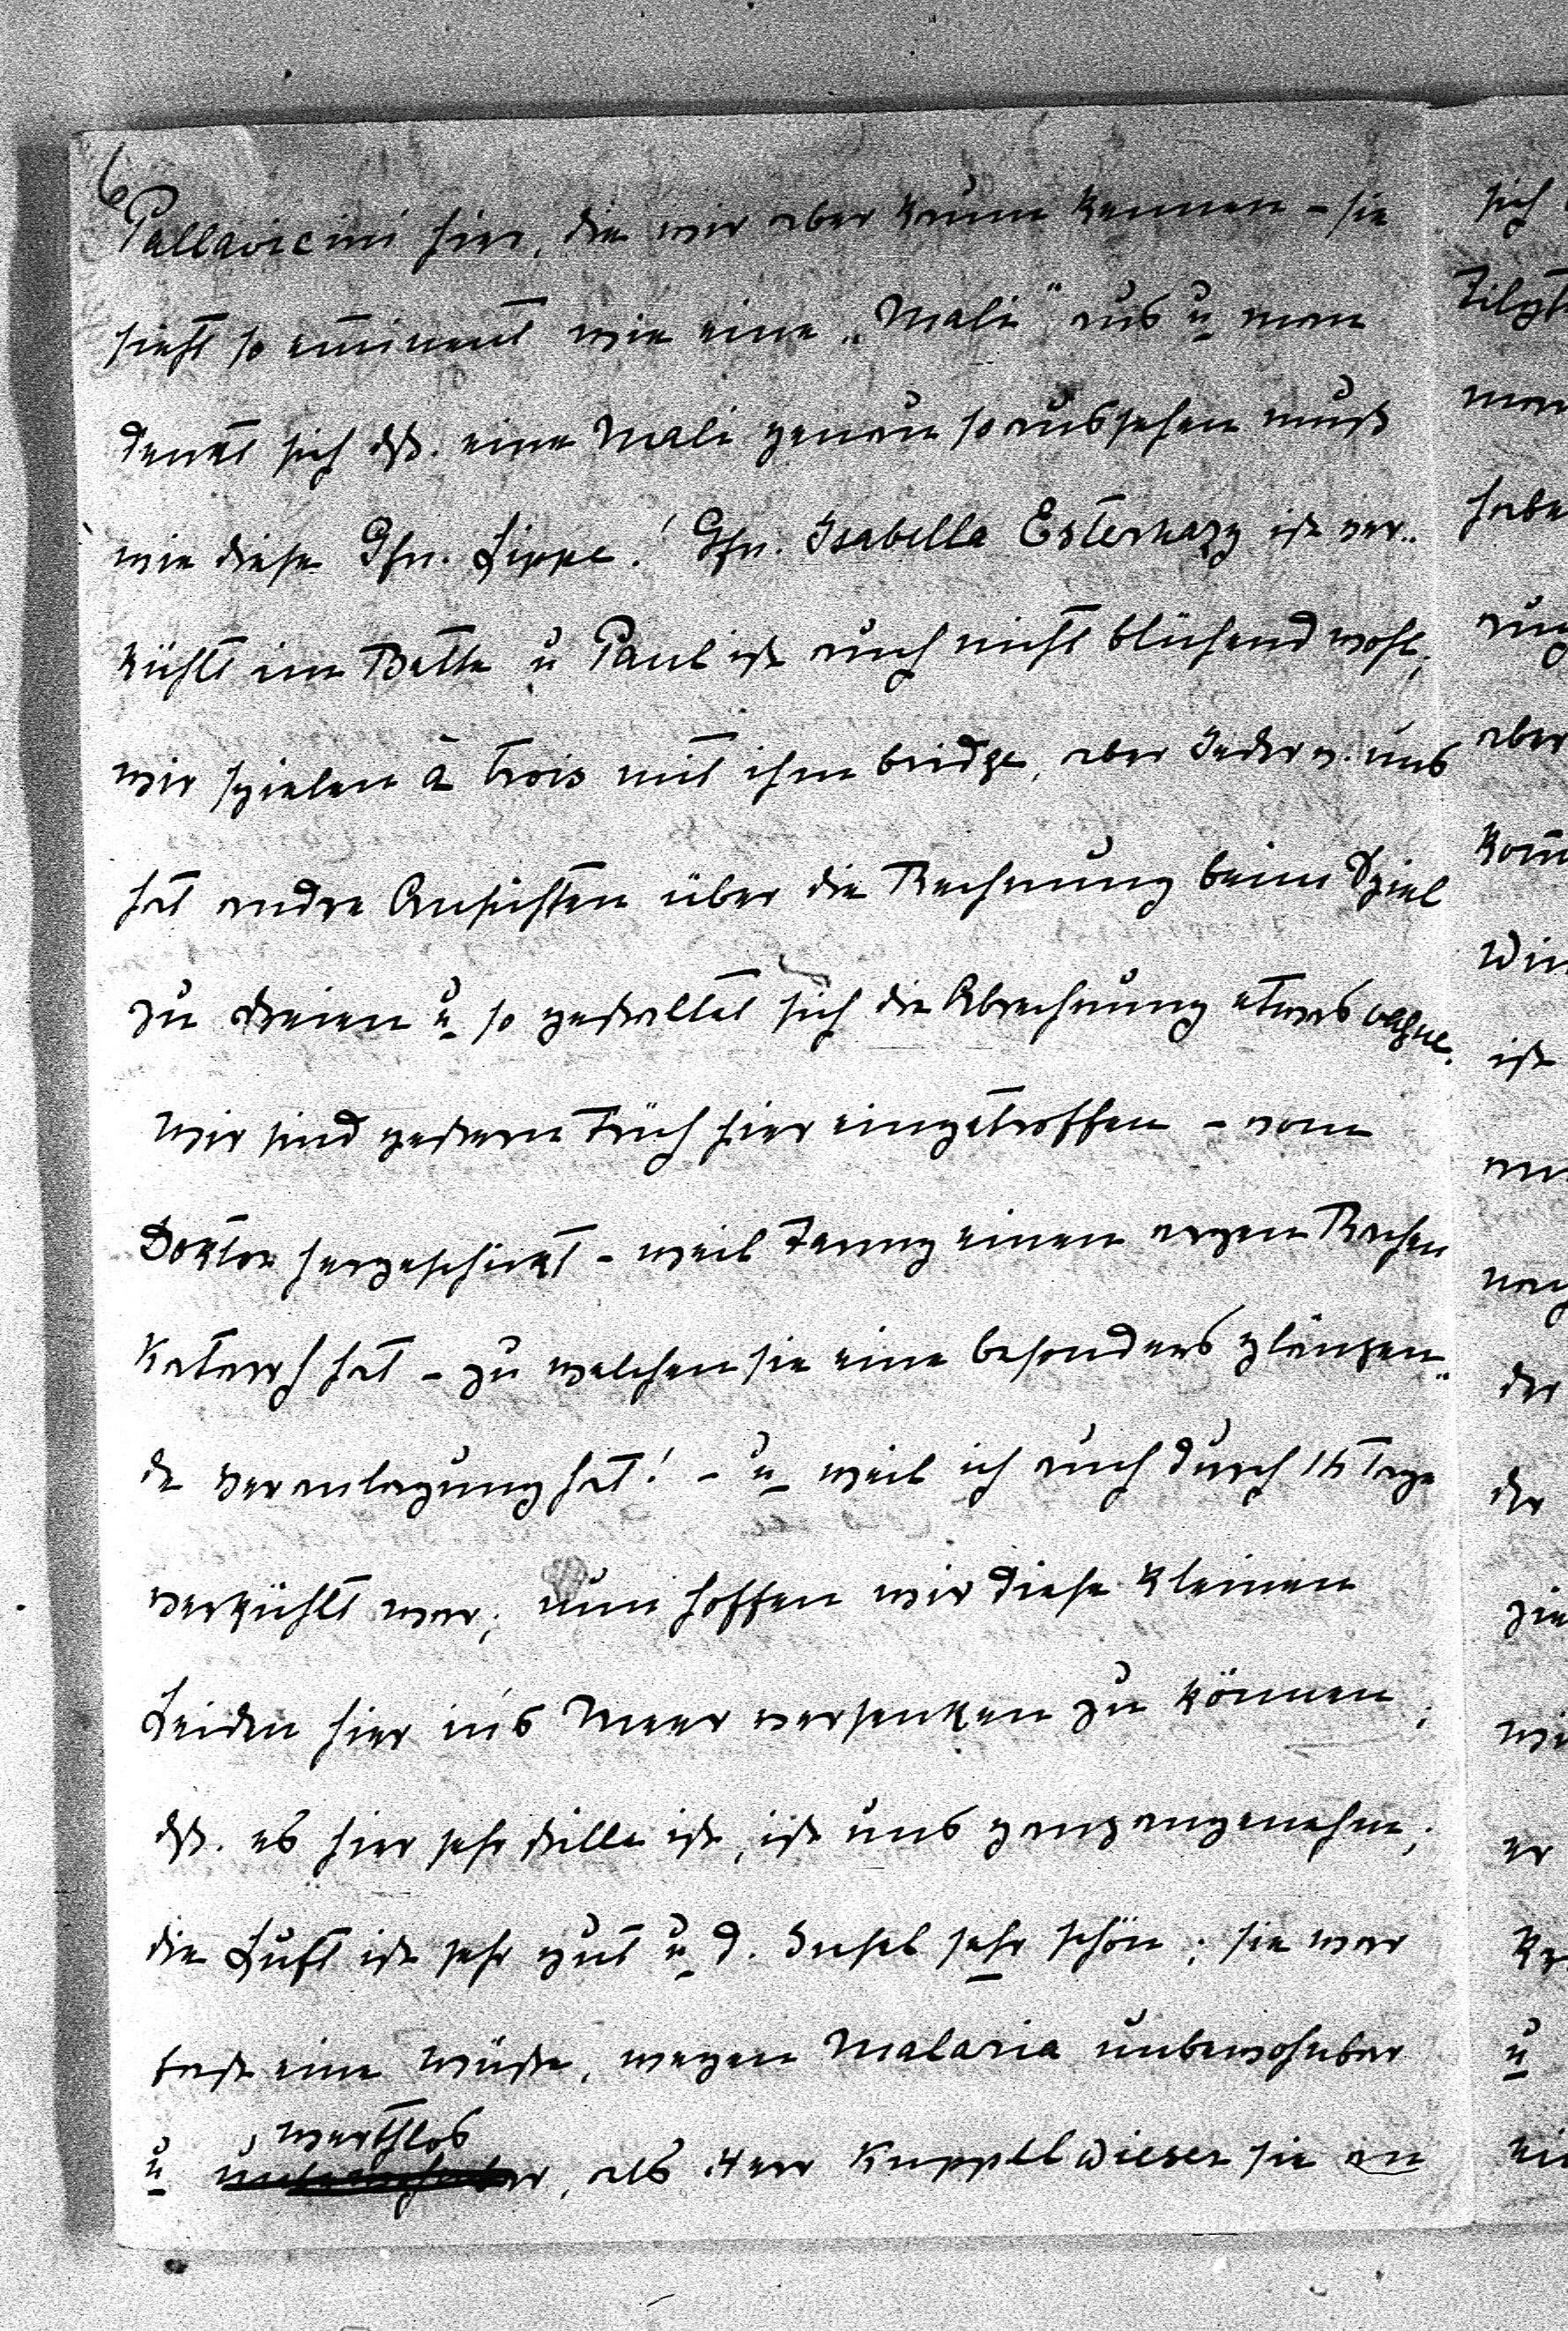 6
Pallavicini hier, die wir aber kaum kennen – sie
sieht so eminent wie eine „Mali" aus u man
denkt sich dß. eine Mali genau so aussehen muß
wie diese Gfn. Lippe! Gfn. Isabella Esterhazy ist ver-
kühlt im Bette u Paul ist auch nicht blühend wohl;
wir spielen à trois mit ihm bridge, aber Jeder v. uns
hat andre Ansichten über die Rechnung beim Spiel
zu dreien u so gestaltet sich die Abrechnung etwas vague.
Wir sind gestern Früh hier eingetroffen – vom
Doktor hergeschickt – weil Fanny einen argen Rachen
Katarrh hat – zu welchen sie eine besonders glänzen-
de Veranlagung hat! – u weil ich auch durch 14 Tage
verkühlt war; nun hoffen wir diese kleinen
Leiden hier in's Meer versenken zu können;
dß. es hier sehr stille ist, ist uns ganz angenehm;
die Luft ist sehr gut u d. Insel sehr schön; sie war
fast eine Wüste, wegen Malaria unbewohnbar
werthlos
u, als Herr Kuppelwieser sie an
sich
man
habe
aber
ist
der
der
er
u